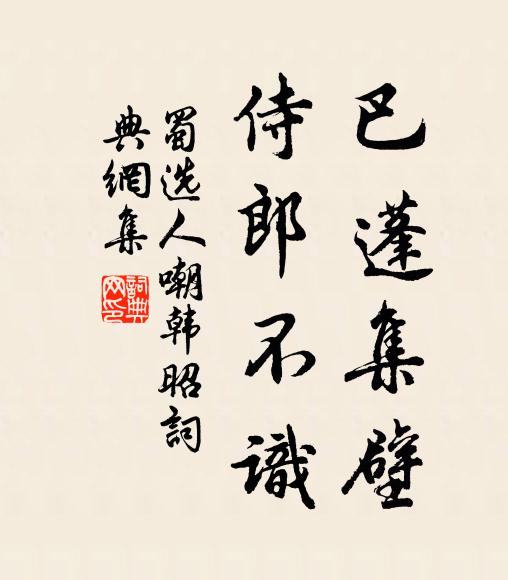 巴蓬集壁
侍郎不識
蜀选人嘲韩昭詞
典網集
詞典网印